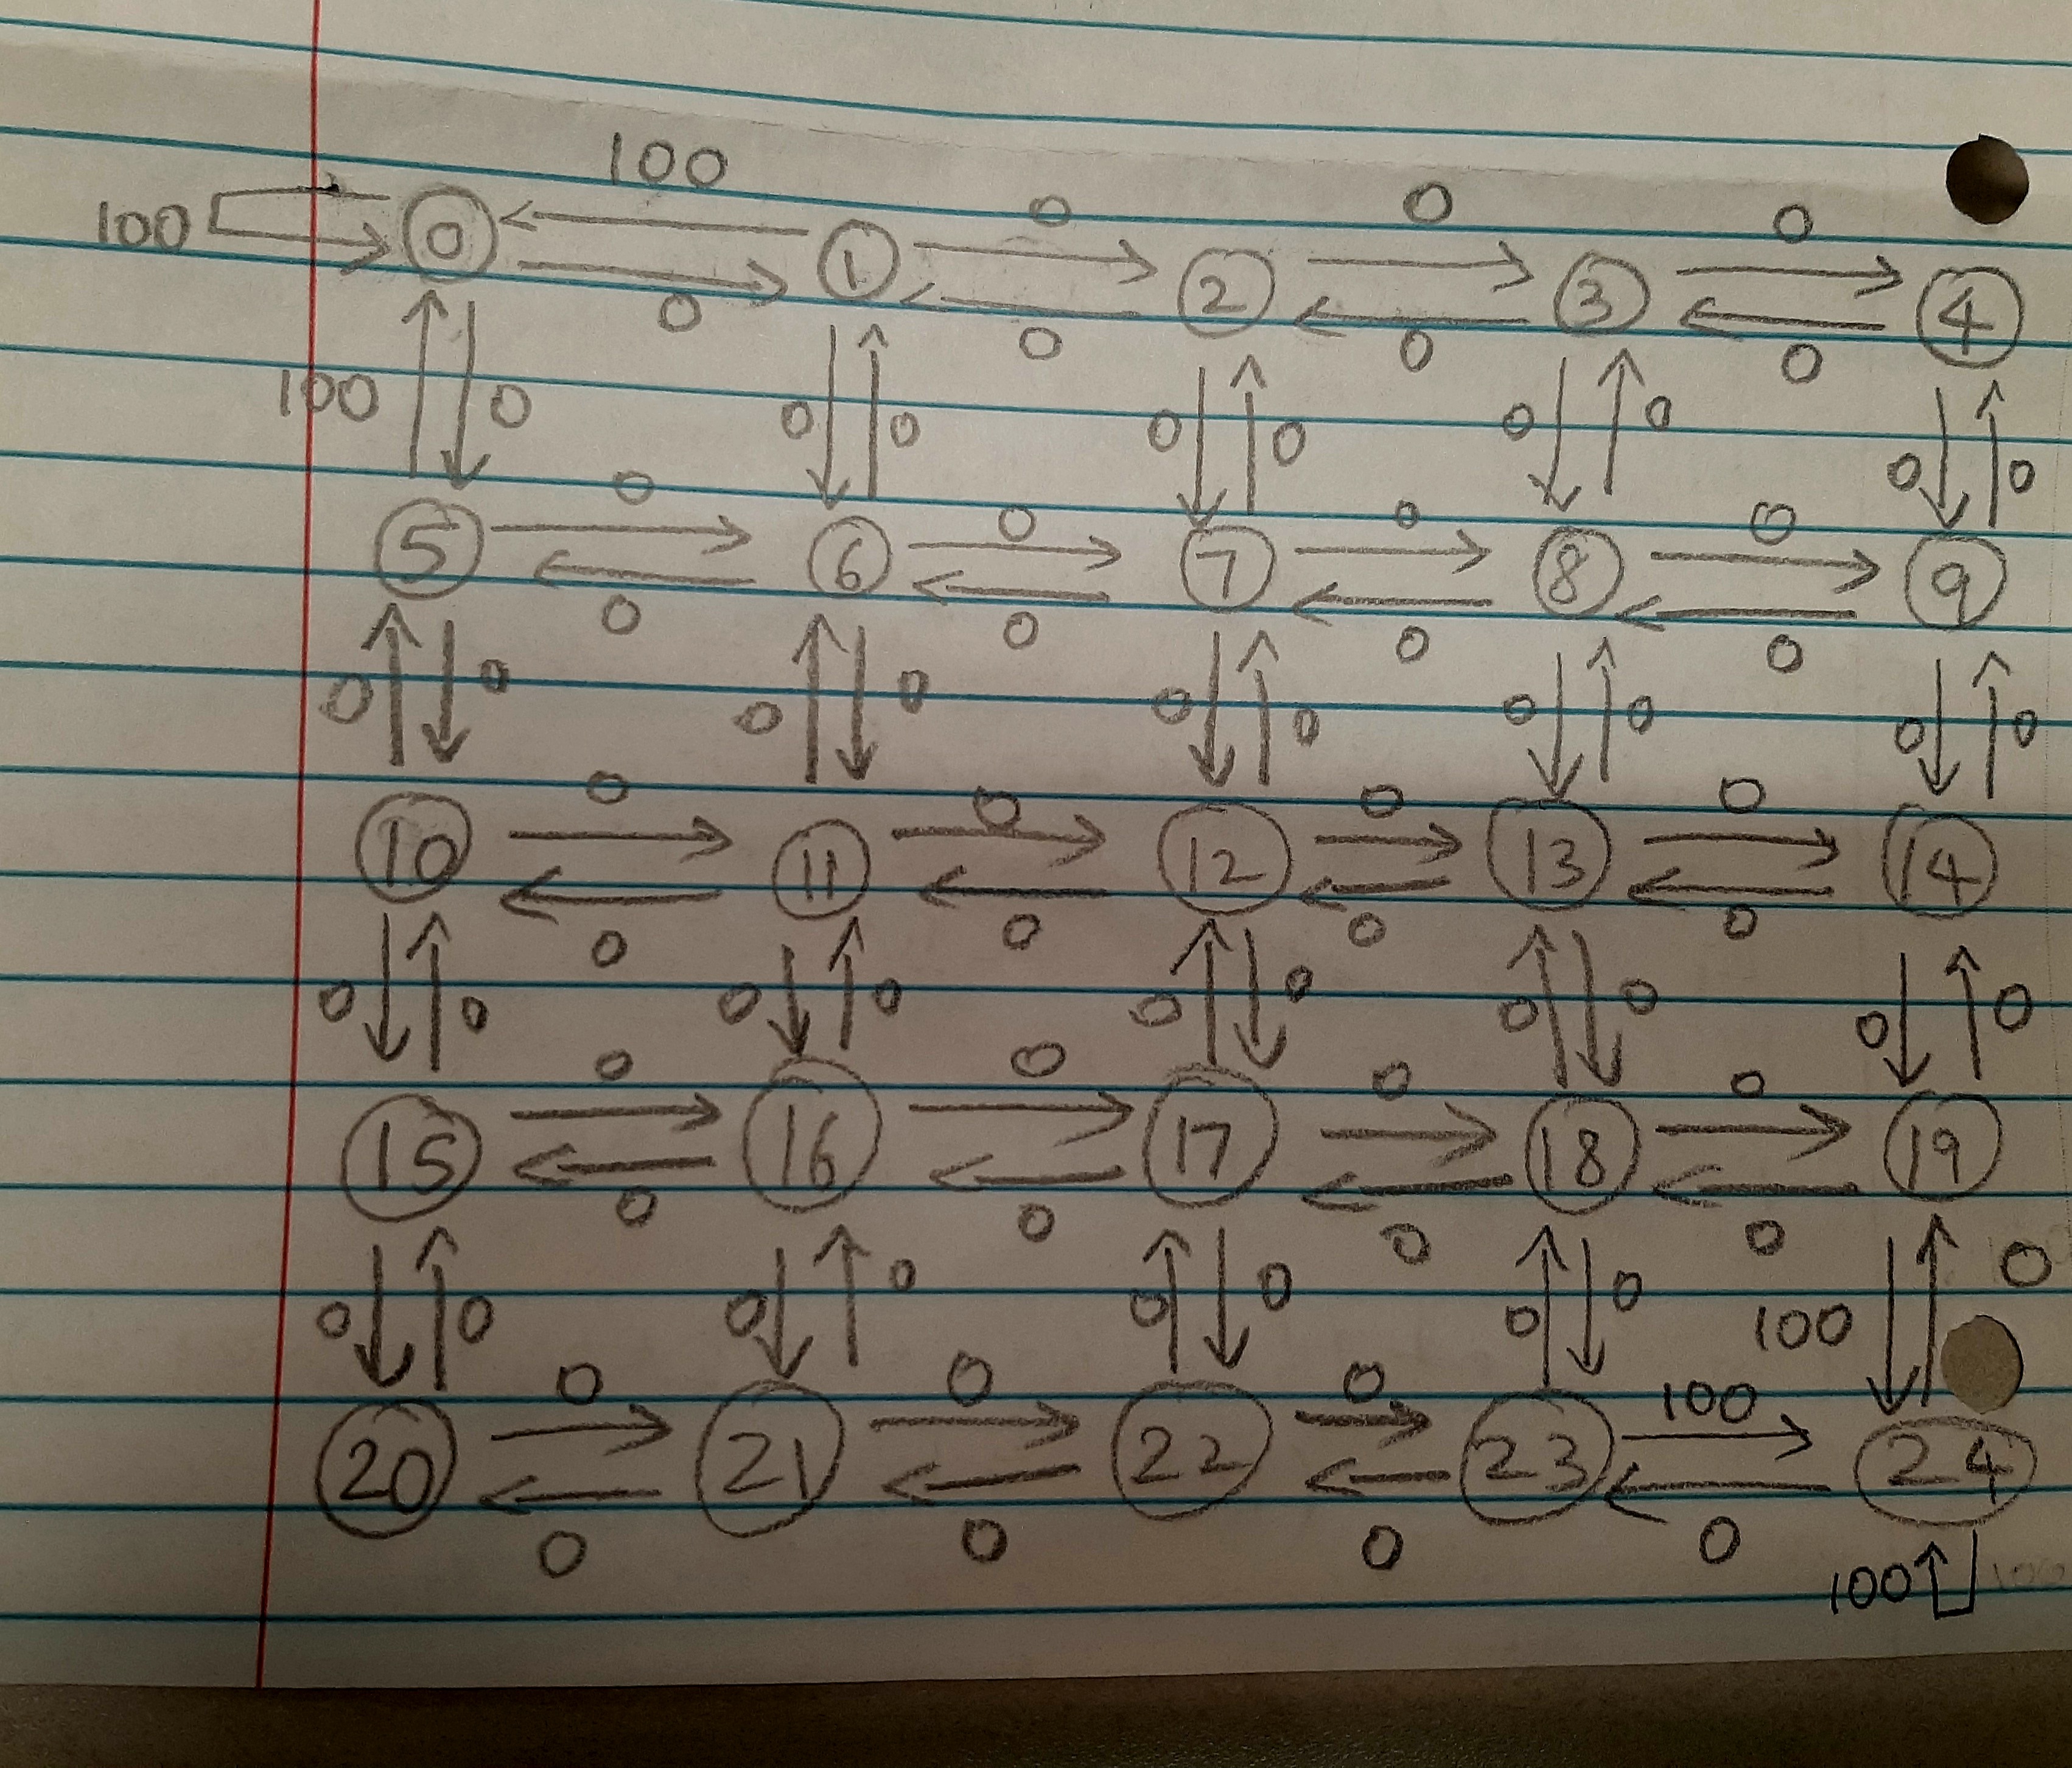 100
0 0 0
100 0 1 2 3 4
0 0 0 0
100 0 0 0 0 0 0 0 0 0
0 0 0 0
5 6 7 8 9
0 0 0 0
0 0 0 0 0 0 0 0 0 0
0 0 0 0
10 11 12 13 14
0 0 0 0
0 0 0 0 0 0 0 0 0 0
0 0 0 0
15 16 17 18 19
0 0 0 0
0 0 0 0 0 0 0 0 100 0
0 0 0 100
20 21 22 23 24
0 0 0 0
100